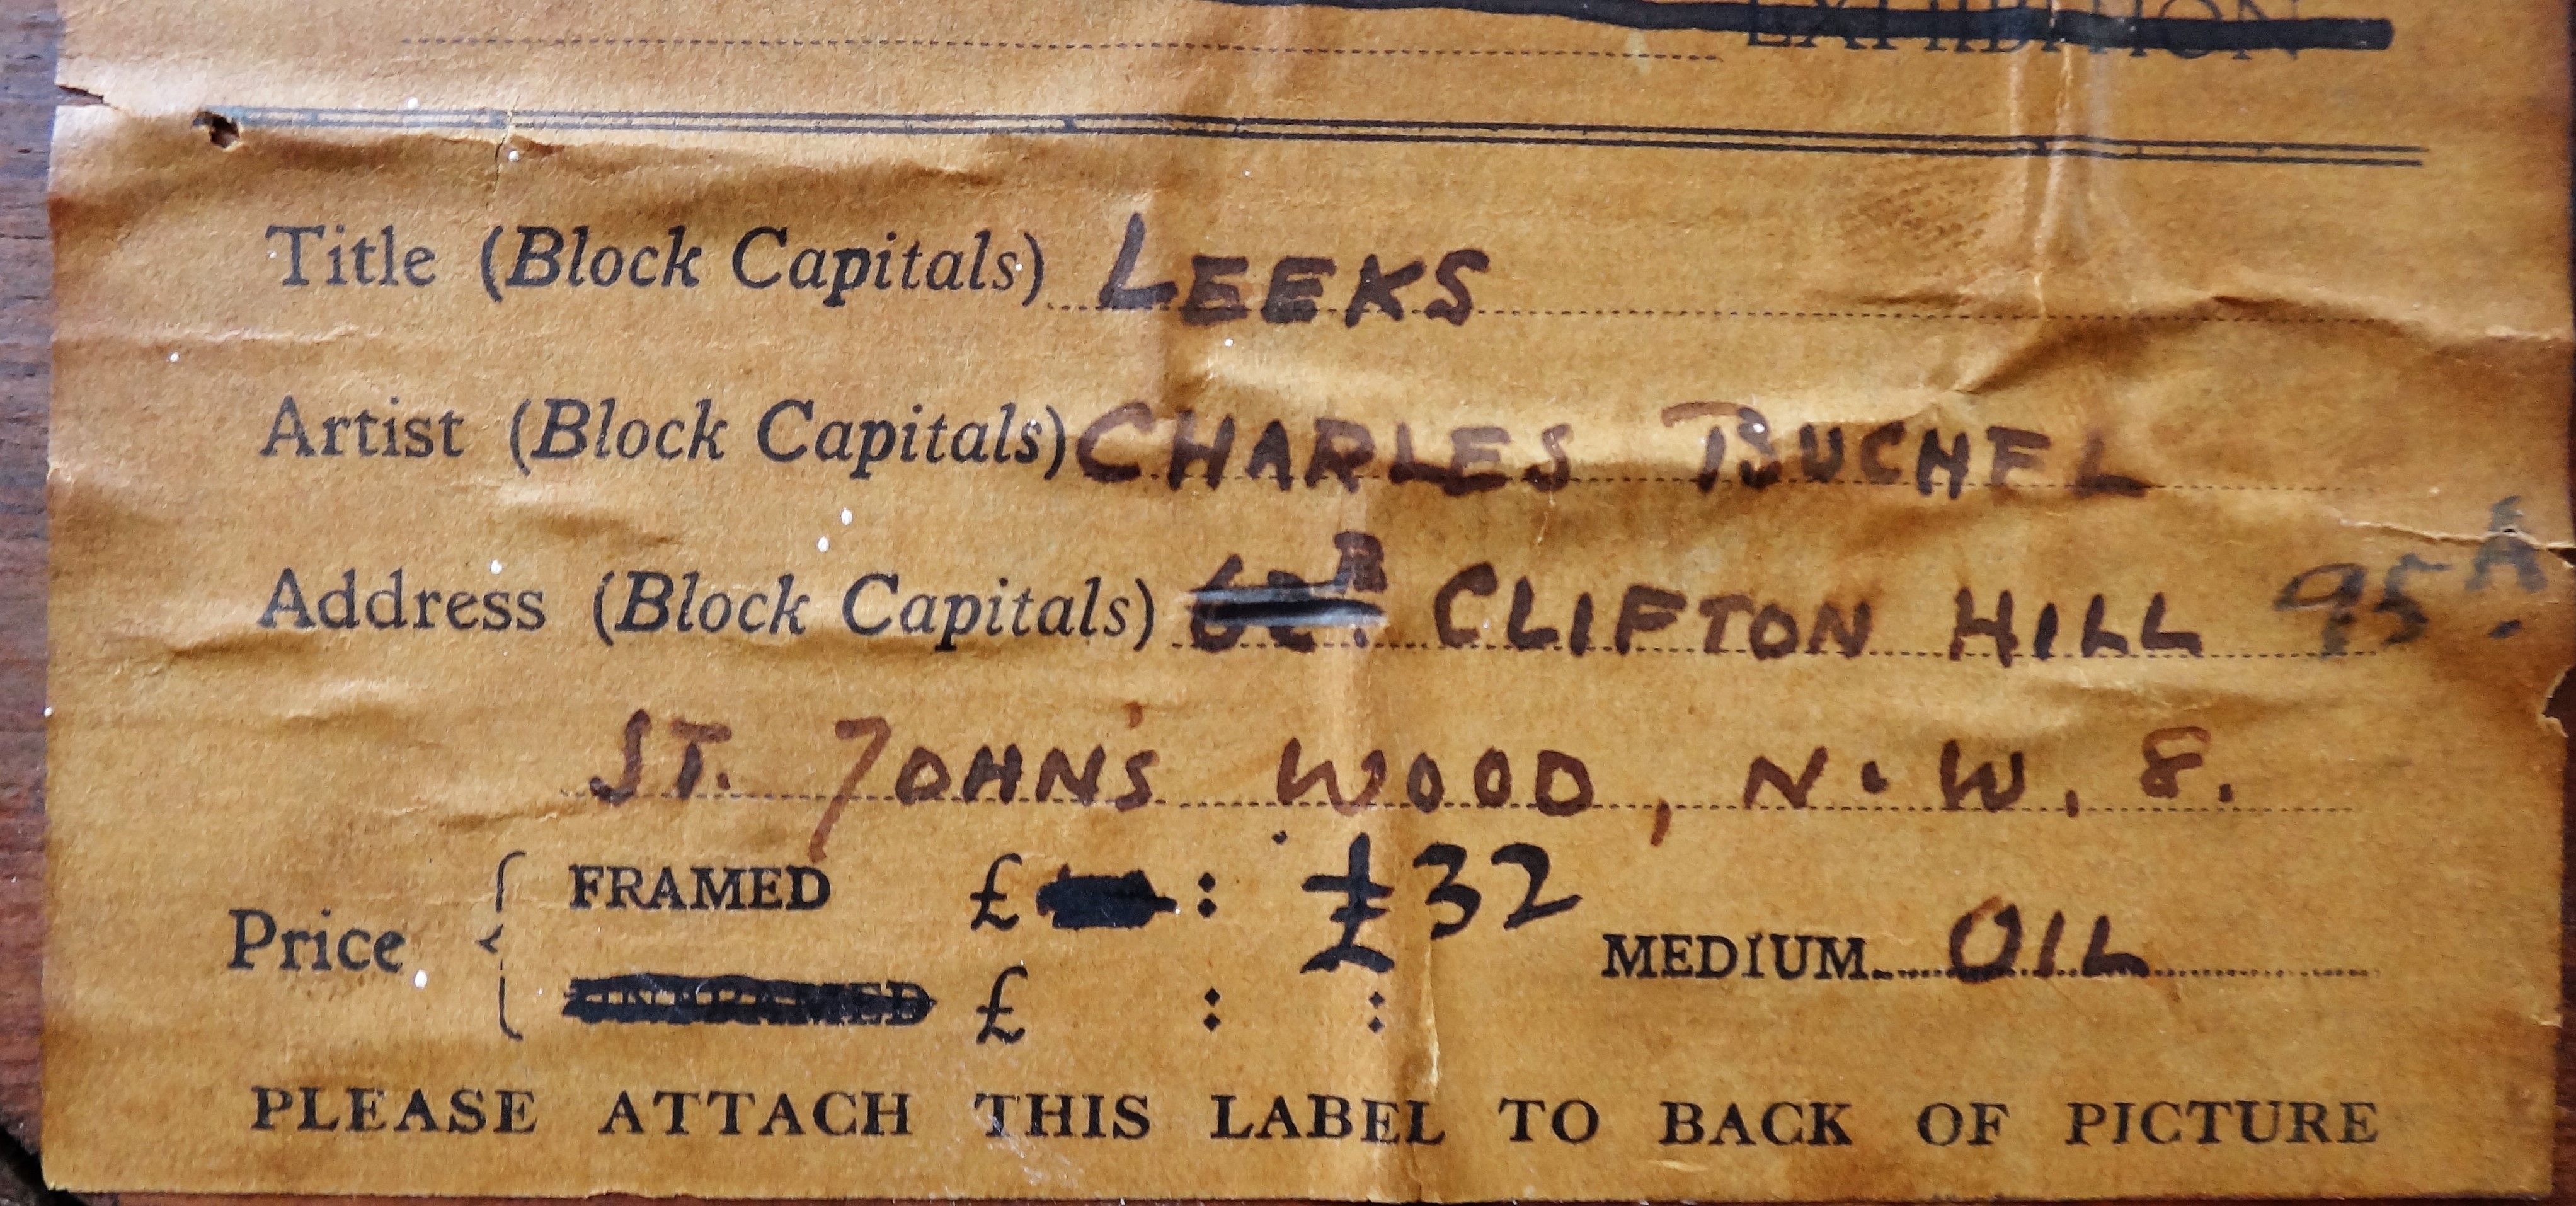 EXHIBITION
Title (Block Capitals) LEEKS
Artist (Block Capitals) CHARLES BUCHEL
Address (Block Capitals) CLIFTON HILL 95A.
ST. JOHN'S WOOD, N.W. 8.
FRAMED £ : £32
Price MEDIUM OIL
UNFRAMED £ : :
PLEASE ATTACH THIS LABEL TO BACK OF PICTURE